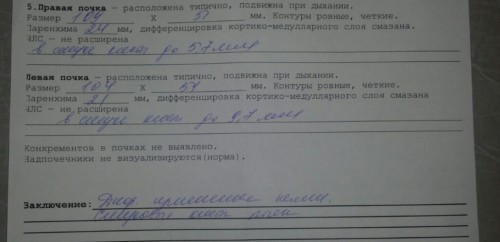 5.Правая почка – расположена типично, подвижна при дыхании.
Размер 104 X 51 мм. Контуры ровные, четкие.
Заренхима 24 мм, дифференцировка кортико-медуллярного слоя смазана.
ЧЛС – не расширена
в синусе кист до 5,7 мм
Левая почка – расположена типично, подвижна при дыхании.
Размер 104 X 51 мм. Контуры ровные, четкие.
Заренхима 21 мм, дифференцировка кортико-медуллярного слоя смазана
ЧЛС – не расширена
в синусе кист до 9,7 мм
Конкрементов в почках не выявлено.
Надпочечники не визуализируются(норма).
Заключение: Диф. изменения
почек